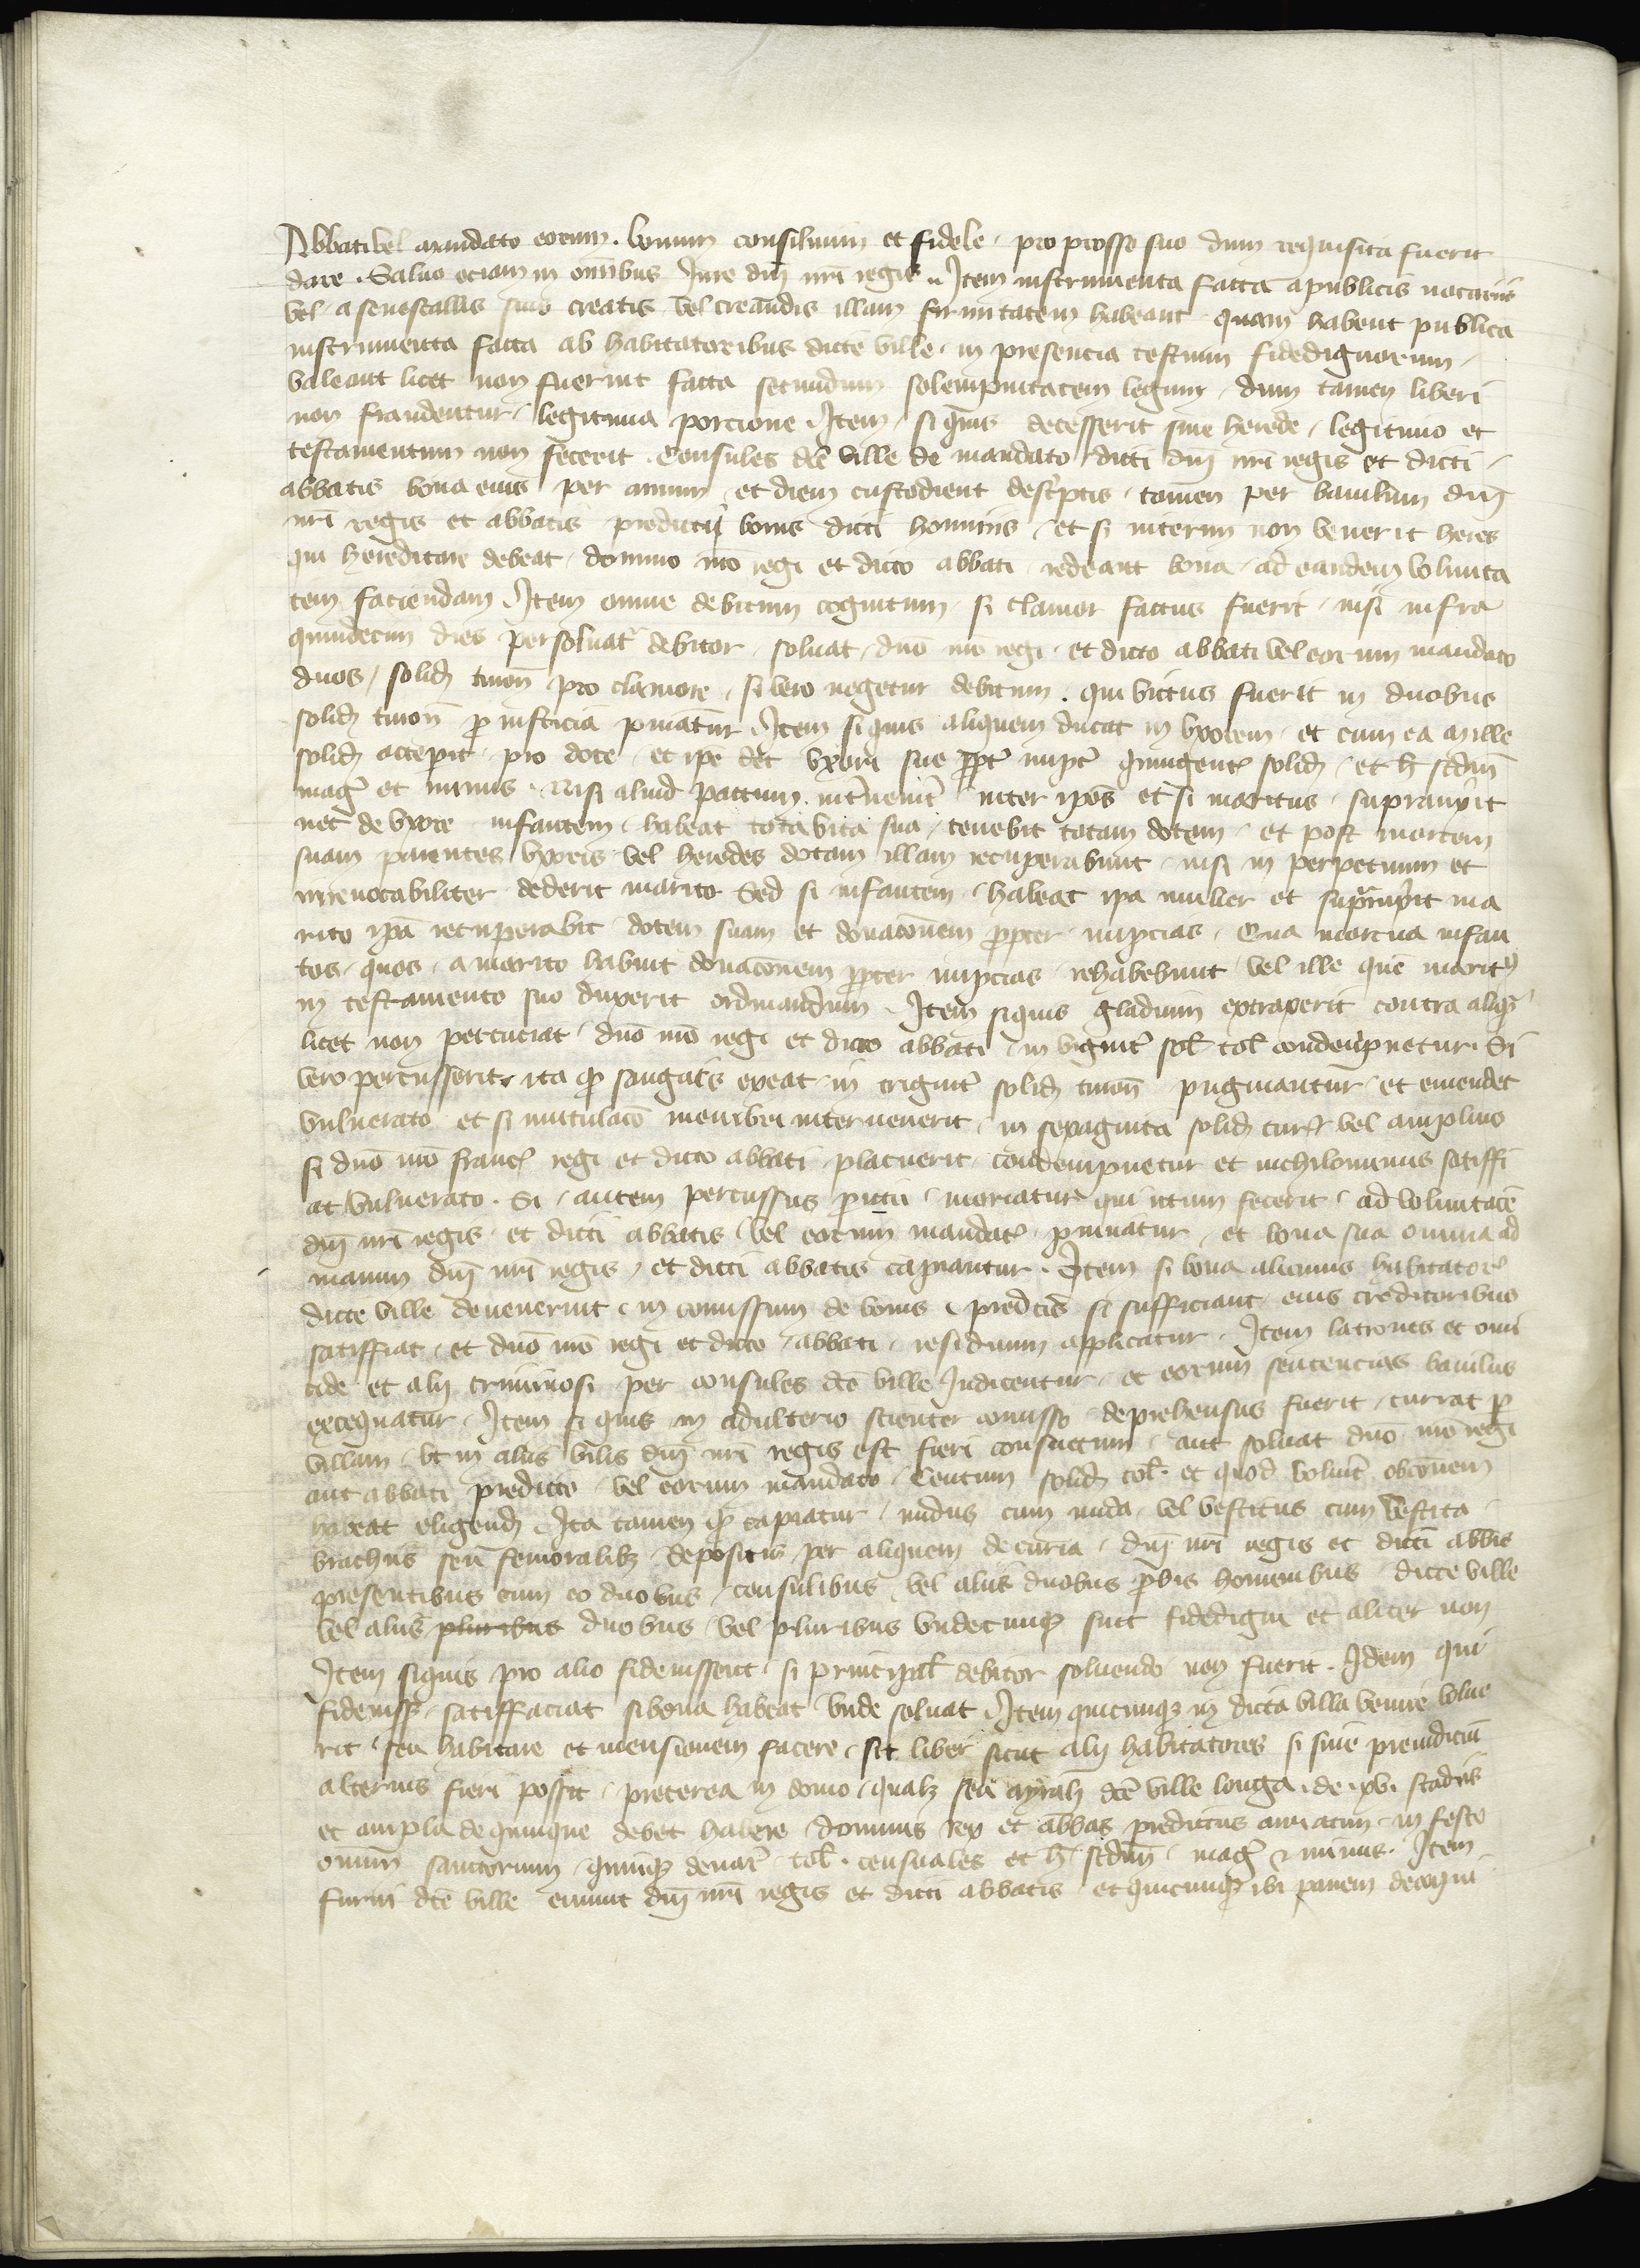 Abbati vel mandato eorum . bonum consilium et fidele / pro posse suo dum requisita fuerit
dare . Saluo eciam in omībus Jure dn̄i nr̄i regis . Item instrumenta facta apublicis notariis
vel / a senescallis suis creatis vel creandis illam firmitatem habeant quam habent publica
instrumenta facta ab habitatoribus dicte ville / in presencia testium fidedignorum /
valeant licet non fuerint facta secundum solempnitatem legum / dum tamen liberi
non fraudentur / legitima porcione Item / si quis decesserit sine herede / legitimo et
testamentum non fecerit . Consules dc̄e ville de mandato dicti dn̄i nr̄i regis et dicti /
abbatis bona eius per annum / et diem custodient descˀptis / tamen per baiulum dn̄i
nr̄i regis et abbatis predicti bonis dicti hominis / et si interim non venerit heres
qui hereditare debeat / domino nr̄o regi et dicto abbati redeant bona / ad eandem volunta
tem faciendam Item omne debitum cognitum / si clamor factus fuerit / nisi infra
quindecim dies persoluatˀ debitor / soluat / dn̄o nr̄o regi / et dicto abbati vel eorum mandato
duos / solid turon̄ pro clamore / si vero negetur debitum . qui victus fuerit in duobus
solid turon̄ ꝑ iusticia puniatur Item si quis aliquem ducat in vxorem / et cum ea mille
solid acceperit / pro dote / et ipe det vxori sue ꝓpt̄ nupt̄ quingent solid / et h̄ scdm̄
maḡ et minus . Nisi aliud pactum int̄uenit̄ inter ipōs et si maritus supraūixit
nec de vxore infantem / habeat tota vita sua / tenebit totam dotem / et post mortem
suam parentes vxoris vel heredes dotam illam recuperabunt / nisi in perpetuum et
irreuocabiliter dederit marito Sed si infantem / habeat ipa mulier et supravixit ma
rito ipā recuperabit dotem suam et donacōem ꝓpter nupcias . Qua mortua infan
tes / quos / a marito habuit donacōnem ꝓpter nupcias rehabebunt vel ille que maritꝰ
in testamento suo duxerit ordinandum . Item siquis gladium extraxerit contra aliq̄
licet non percuciat / dn̄o nr̄o regi et dicto abbati / in vigint̄ sol tol condempnetur . Si
vero percusserit / ita ꝙ sanguis exeat / in trigint̄ solid turon̄ pugniantur / et emendet
vulnerato et si mutulacō membri interuenerit / in sexaginta solid tur vel amplius
si dn̄o nr̄o franc̄ regi et dicto abbati / placuerit condempnetur et nichilominus satiffi
at vulnerato . Si / autem percussus moriatur qui ictum fecerit / ad voluntatē
dn̄i nr̄i regis / et dicti abbatis / vel eorum mandat̄ puniatur / et bona sua omnia ad
manum dn̄i nr̄i regis / et dicti abbatis capiantur . Item si bona alicuius habitatorꝭ
dicte ville deuenerint / in comissum de bonis / predcīs si sufficiant eius creditoribus
satiffiat / et dn̄o nr̄o regi et dicto / abbati / residuum applicatur . Item latrones et omi
cide et alij criminosi per consules dc̄e ville Judicentur / et eorum sentencias baiulus
exequatur . Item si quis in adulterio scienter comisso deprehensus fuerit / currat ꝑ
villam / vt in aliis villis dn̄i nr̄i regis est fieri consuetum / aut soluat dn̄o nr̄o regi
aut abbati predicto / vel eorum mandato / Centum solid tol et quod voluit̄ obcōnem
habeat eligend Ita tamen ꝙ capiatur / nudus cum nuda / vel vestitus cum vestita /
brachiis seu femoralibꝫ depositis per aliquem de curia / dn̄i nr̄i regis et dicti abbīs
presentibus cum eo duobus / consulibus / vel aliis duobus ꝓbis hominibus dicte ville
vel aliis pluribus duobus / vel pluribus vndecunqꝫ sint fidedigni et aliter non
Item siquis pro alio fideiussent / si principal̄ debitor soluendo non fuerit . Idem qui
fideiuss̄ / satiffaciat si bona habeat vnde soluat Item quicunqꝫ in dicta villa venire volue
rit seu habitare et mensionem facere / sit liber sicut alij habitatores si sine preiudiciū
alterius fieri possit / preterea in domo / qualꝫ seu ayralꝫ dc̄e ville longa / de . xv . stadiis
et ampla de quinque debet habere dominus rex et abbas predictus annatim / in festo
omniū sanctorum / quinqꝫ denar̄ tol . censuales et h̄ scdm̄ maḡ & minus . Item
furni dc̄e ville erunt dn̄i nr̄i regis et dicti abbatis / et quicunqꝫ ibi panem decoqui